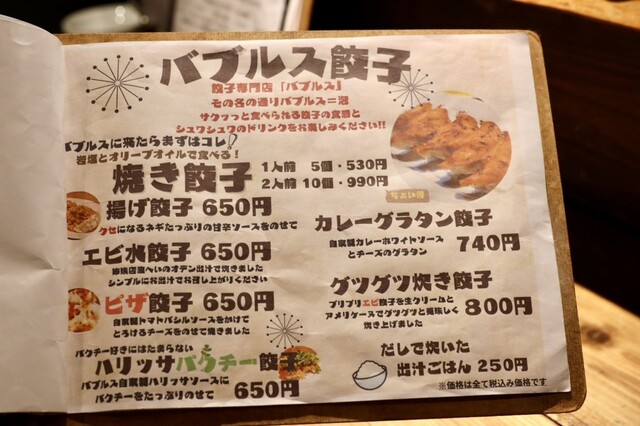 バブルス餃子
餃子専門店「バブルス」
その名の通りバブルス=泡
サクッっと食べられる餃子の食感と
シュワシュワのドリンクをお楽しみください!!
バブルスに来たらまずはコレ!
岩塩とオリーブオイルで食べる!
焼き餃子 1人前 5個・530円
2人前 10個・990円
揚げ餃子 650円
クセになるネギたっぷりの甘辛ソースをのせて
エビ水餃子 650円
オデン出汁で炊きました
シンプルにお出汁でお召し上がりください
ピザ餃子 650円
自家製トマトバジルソースをかけて
とろけるチーズをのせて焼きました
パクチー好きにはたまらない
ハリッサパクチー餃子
バブルス自家製ハリッサソースに
パクチーをたっぷりのせて 650円
カレーグラタン餃子
自家製カレーホワイトソース
とチーズのグラタン 740円
グツグツ炊き餃子
プリプリエビ餃子を生クリームと
アメリケーヌでグツグツと美味しく
炊き上げました 800円
だしで炊いた
出汁ごはん 250円
※価格は全て税込み価格です